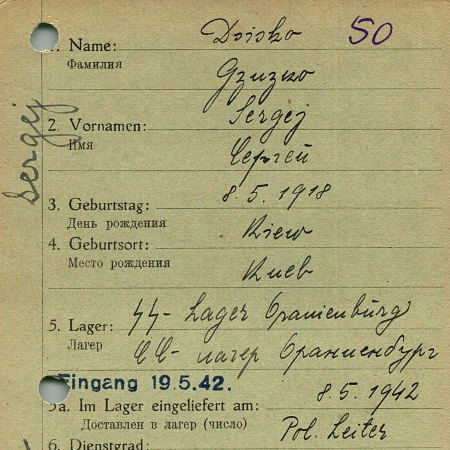 50
1. Name: Dsisko
Фамилия Дзизко
2. Vornamen: Sergej
Имя Сергей
Sergej
3. Geburtstag: 8.5.1918
День рождения
4. Geburtsort: Kiew
Место рождения Киев
5. Lager: SS- Lager Oranienburg
Лагер СС- лагер Ораниенбург
Eingang 19.5.42.
5a. Im Lager eingeliefert am: 8.5.1942
Доставлен в лагер (число)
6. Dienstgrad: Pol. Leiter